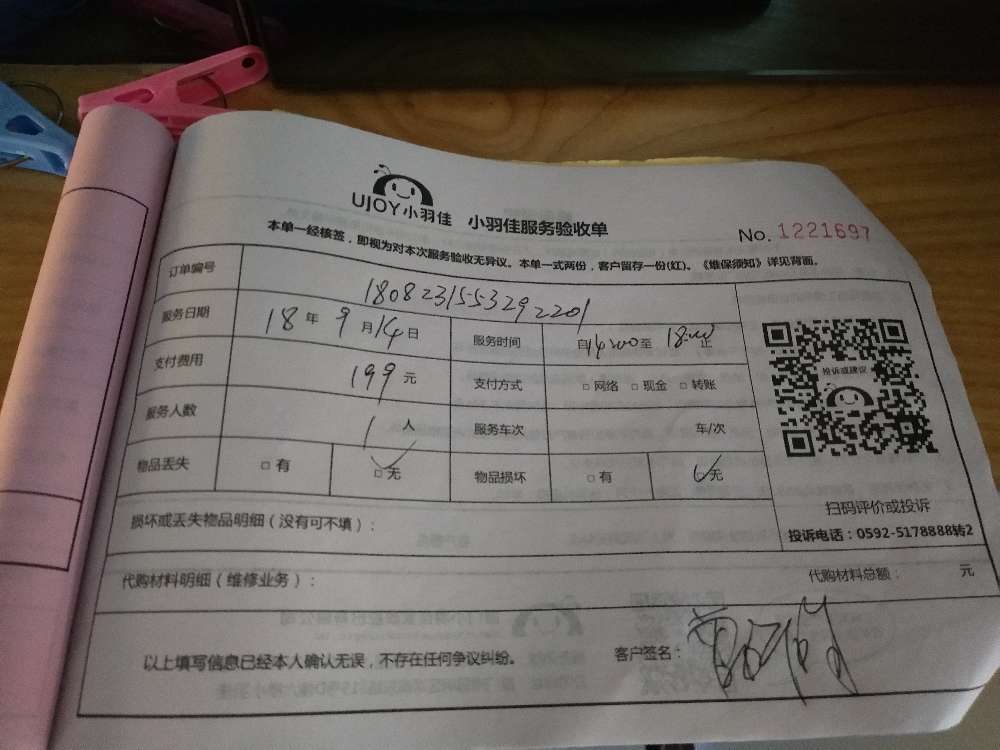 UJOY小羽佳 小羽佳服务验收单
No. 1221697
本单一经核签，即视为对本次服务验收无异议。本单一式两份，客户留存一份(红)。《维保须知》详见背面。
订单编号 18082315532922 01
服务日期 18年9月14日 服务时间 自14:00至18:00止
支付费用 199元 支付方式 □网络 □现金 □转账
服务人数 1人 服务车次 车/次
物品丢失 □有 □无 物品损坏 □有 □无
投诉或建议
扫码评价或投诉
投诉电话：0592-5178888转2
损坏或丢失物品明细（没有可不填）：
代购材料明细（维修业务）： 代购材料总额： 元
以上填写信息已经本人确认无误，不存在任何争议纠纷。 客户签名：